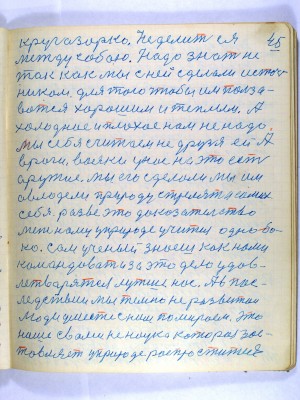 45
кругазорко. Не делит ся
между собою. Надо знать не
так как мы с ней сделали источ
ником, для того чтобы им польза-
ватся хорошим и теплым. А
холодное и плохое нам не надо.
Мы себя считаем не друзя ей А
враги, всяки у нас на это есть
аружие. мы его сделали мы им
овлодели природу стрелять самих
себя. разве это доказательство
меж наму у природе учится одно бо-
ко. Сам ученый знает как нами
командовать а за это дело удов-
летварятся лутше нас. А в пос-
ледствии мы темно не развитаи
люди уместе с ним помираем. Это
наше с вами не наука которая зас-
товляет у природе распроститца